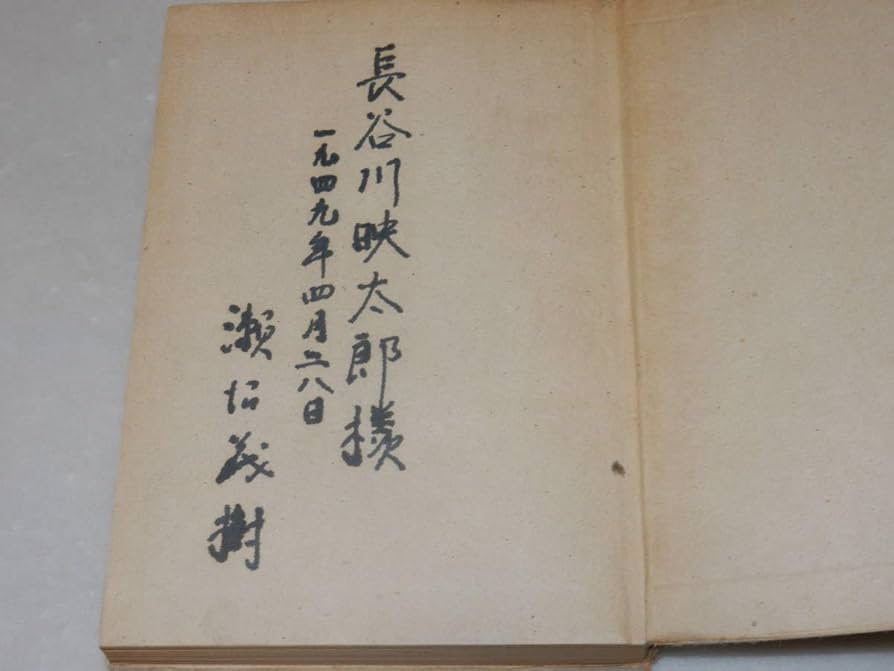 長谷川映太郎様
一九四九年四月二八日
瀬沼茂樹